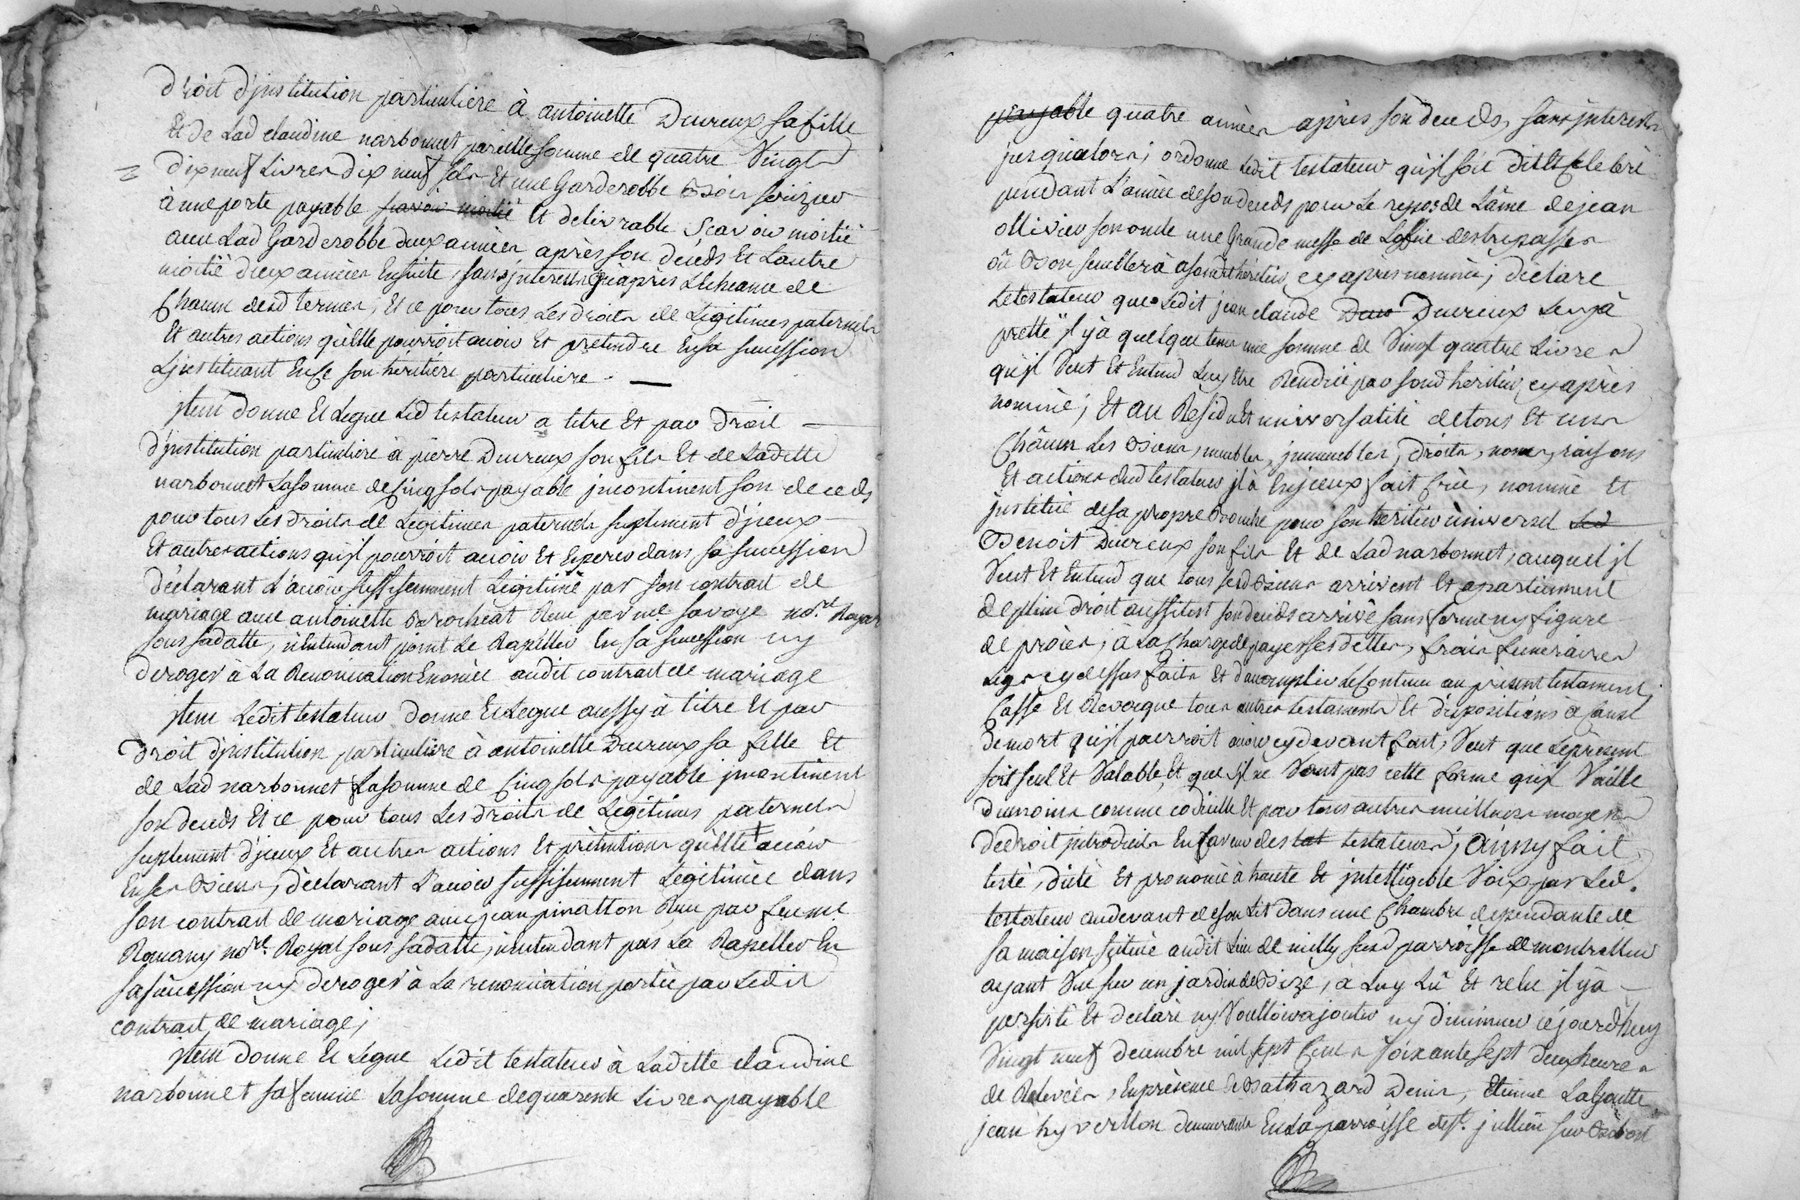 droit d'institution particuliere à antoinette Ducreux sa fille
Et de Lad claudine narbonnet pareille somme de quatre Vingt
dix neuf Livres dix neuf sols Et une Garderobbe bois cerizier
à une porte payable scavoir moitié Et delivrable Scavoir moitié
avec Lad Garderobbe deux années après son décéds Et L'autre
moitié deux années Ensuite, sans interests qu'après L'echeance de
Chacun desd termes, Et ce pour tous Les droits de Légitimes paternels
Et autres actions qu'Elle pourroit avoir Et prétendre En sa succession
L'instituant En ce son héritière particuliere. —
jtem donne Et Legue Led testateur a titre Et par droit —
d'institution particuliere à pierre Ducreux son fils Et de Ladette
narbonnet La somme de Cinq sols payable jncontinent son deceds
pour tous Les droits de Légitimes paternels suplement d'jceux
Et autres actions qu'jl pourroit avoir Et Esperer dans sa succession
déclarant L'avoir suffisemment Légitimé par son contrat de
mariage avec antoinette Reçu par me savoye no.re Royal
sous sa datte, n'Entendant point Le Rapeller En sa succession ny
deroger à La Renonciation Enoncée audit contrat de mariage
jtem Ledit testateur donne Et Legue aussy à titre Et par
droit d'jnstitution particuliere à antoinette Ducreux sa fille Et
de Lad narbonnet La somme de Cinq sols payable jncontinent
son deceds Et ce pour tous Les droits de Légitimes paternels
suplement d'jceux Et autres actions Et prétentions qu'Elle avoir
En ses biens, déclarant L'avoir suffisemment Légitimée dans
son contrat de mariage avec jean pinatton Reçu par feu me
Romany no.re Royal sous sa datte, n'entendant pas La Rapeller En
sa succession ny deroger à La renonciation portée par Ledit
contrat de mariage;
jtem donne Et Legue Ledit testateur à Laditte claudine
narbonnet sa femme La somme de quarente Livres payable
payable quatre années après son deceds, sans interests
jusqu'alors; ordonne Ledit testateur qu'jl soit dit Et celebré
pendant L'année de son deceds pour Le repos de L'âme de jean
ollivier son oncle une Grande messe de L'office des trepasses
où bon semblera a son dt héritier cy après nommé; declare
Le testateur que Ledit jean claude Duc Ducreux Luy à
pretté jl y à quelque tems une somme de Vingt quatre Livres
qu'jl Veut Et Entend Luy Etre Rendue par sond heritier cy après
nommé; Et au Résidu Et universalité de tous Et uns
Châcun Les biens, meubles, jmmeubles, droits, noms, raisons
Et actions dud testateur jl à En jceux fait créé, nommé Et
jnstitué de sa propre bouche pour son heritier universel Led
Benoit Ducreux son fils Et de Lad narbonnet, auquel jl
Veut Et Entend que tous sesd biens arrivent Et apartiennent
de plein droit aussitost son deceds arrivé sans forme ny figure
de procès, à La charge de payer ses dettes, frais funeraires
Legs cy dessus faits Et d'accomplir Le Contenu au present testament,
Casse Et Revoque tous autres testaments Et dispositions a cause
de mort qu'jl pourroit avoir cy devant fait, Veut que Le present
soit seul Et Valable, Et que s'jl ne Vaut pas cette forme qu'jl Vaille
dumoins comme codicille Et par tous autres meilleurs moyens
de droit jntroduits En faveur des tat testateurs; Ainsy fait
testé, dicté Et prononcé à haute Et jntelligible Voix par Led.
testateur audevant de son Lit dans une Chambre dependante de
sa maison scituée audit Lieu de milly susd parroisse de
ayant Vue sur un jardin de Bize, à Luy Lû Et relu jl y à —
persisté Et declaré ny Vouloir ajouter ny diminuer cejourd'huy
Vingt neuf decembre mil sept Cent soixante sept deux heures
de Relevée, En présence de Balthazard Denis, Etienne Lagoutte
jean hyvernon demeurants En La parroisse de st. jullien sur Bibost